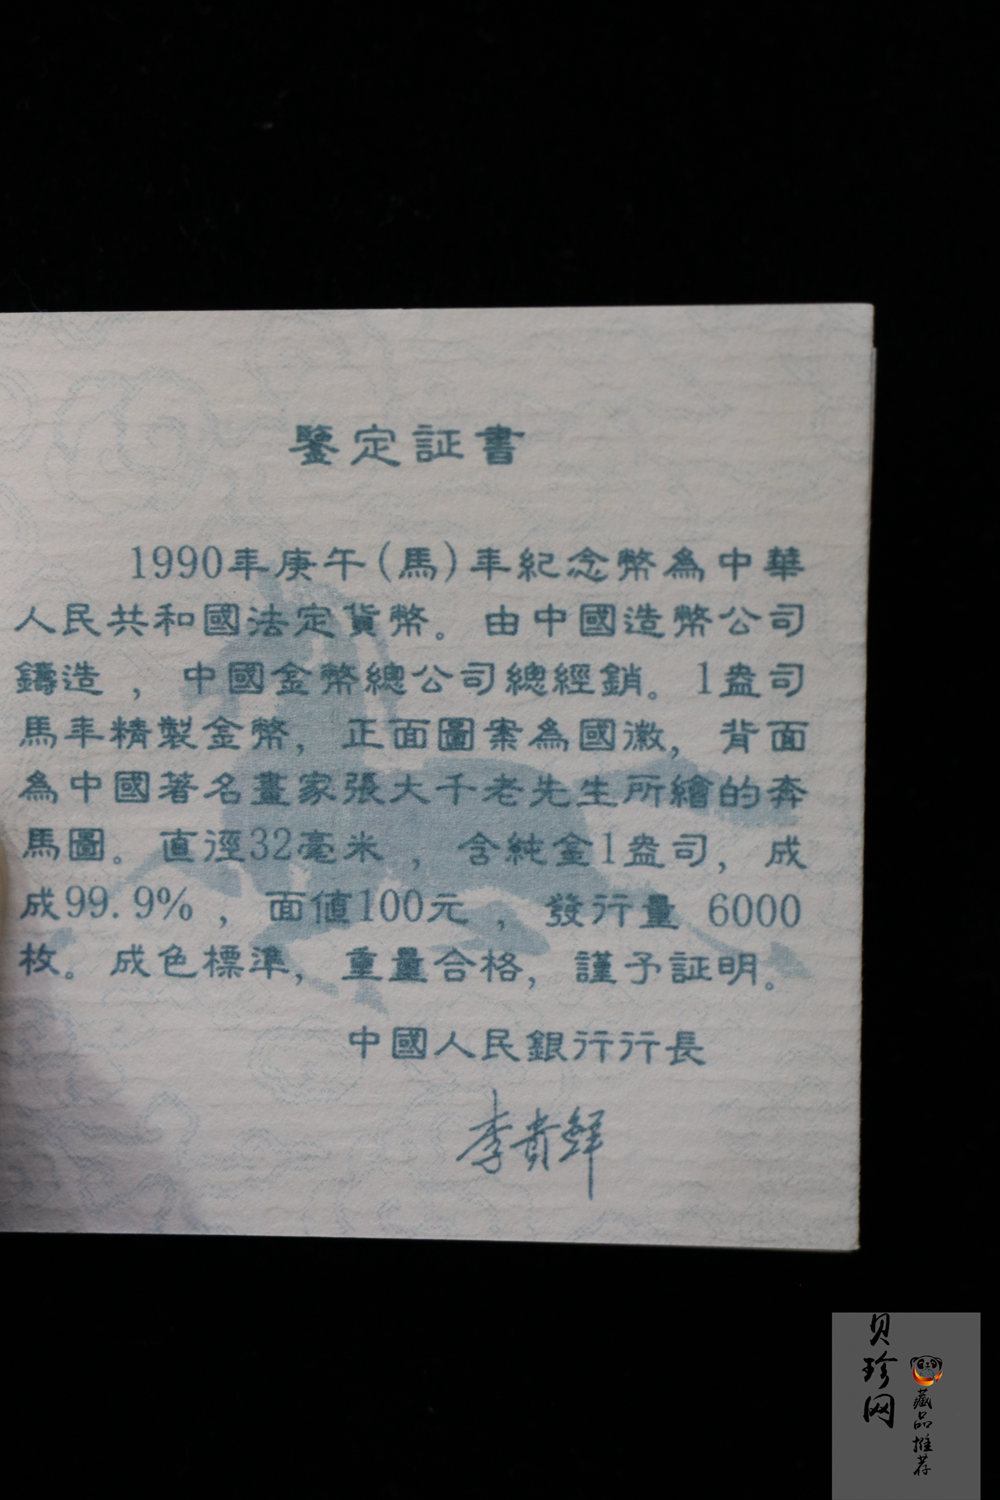 鑒定証書
1990年庚午(馬)年紀念幣為中華
人民共和國法定貨幣。由中國造幣公司
鑄造，中國金幣總公司總經銷。1盎司
馬年精製金幣，正面圖案為國徽，背面
為中國著名畫家張大千老先生所繪的奔
馬圖。直徑32毫米，含純金1盎司，成
成99.9%，面值100元，發行量 6000
枚。成色標準，重量合格，謹予証明。
中國人民銀行行長
李貴鲜
贝珍网
藏品推荐